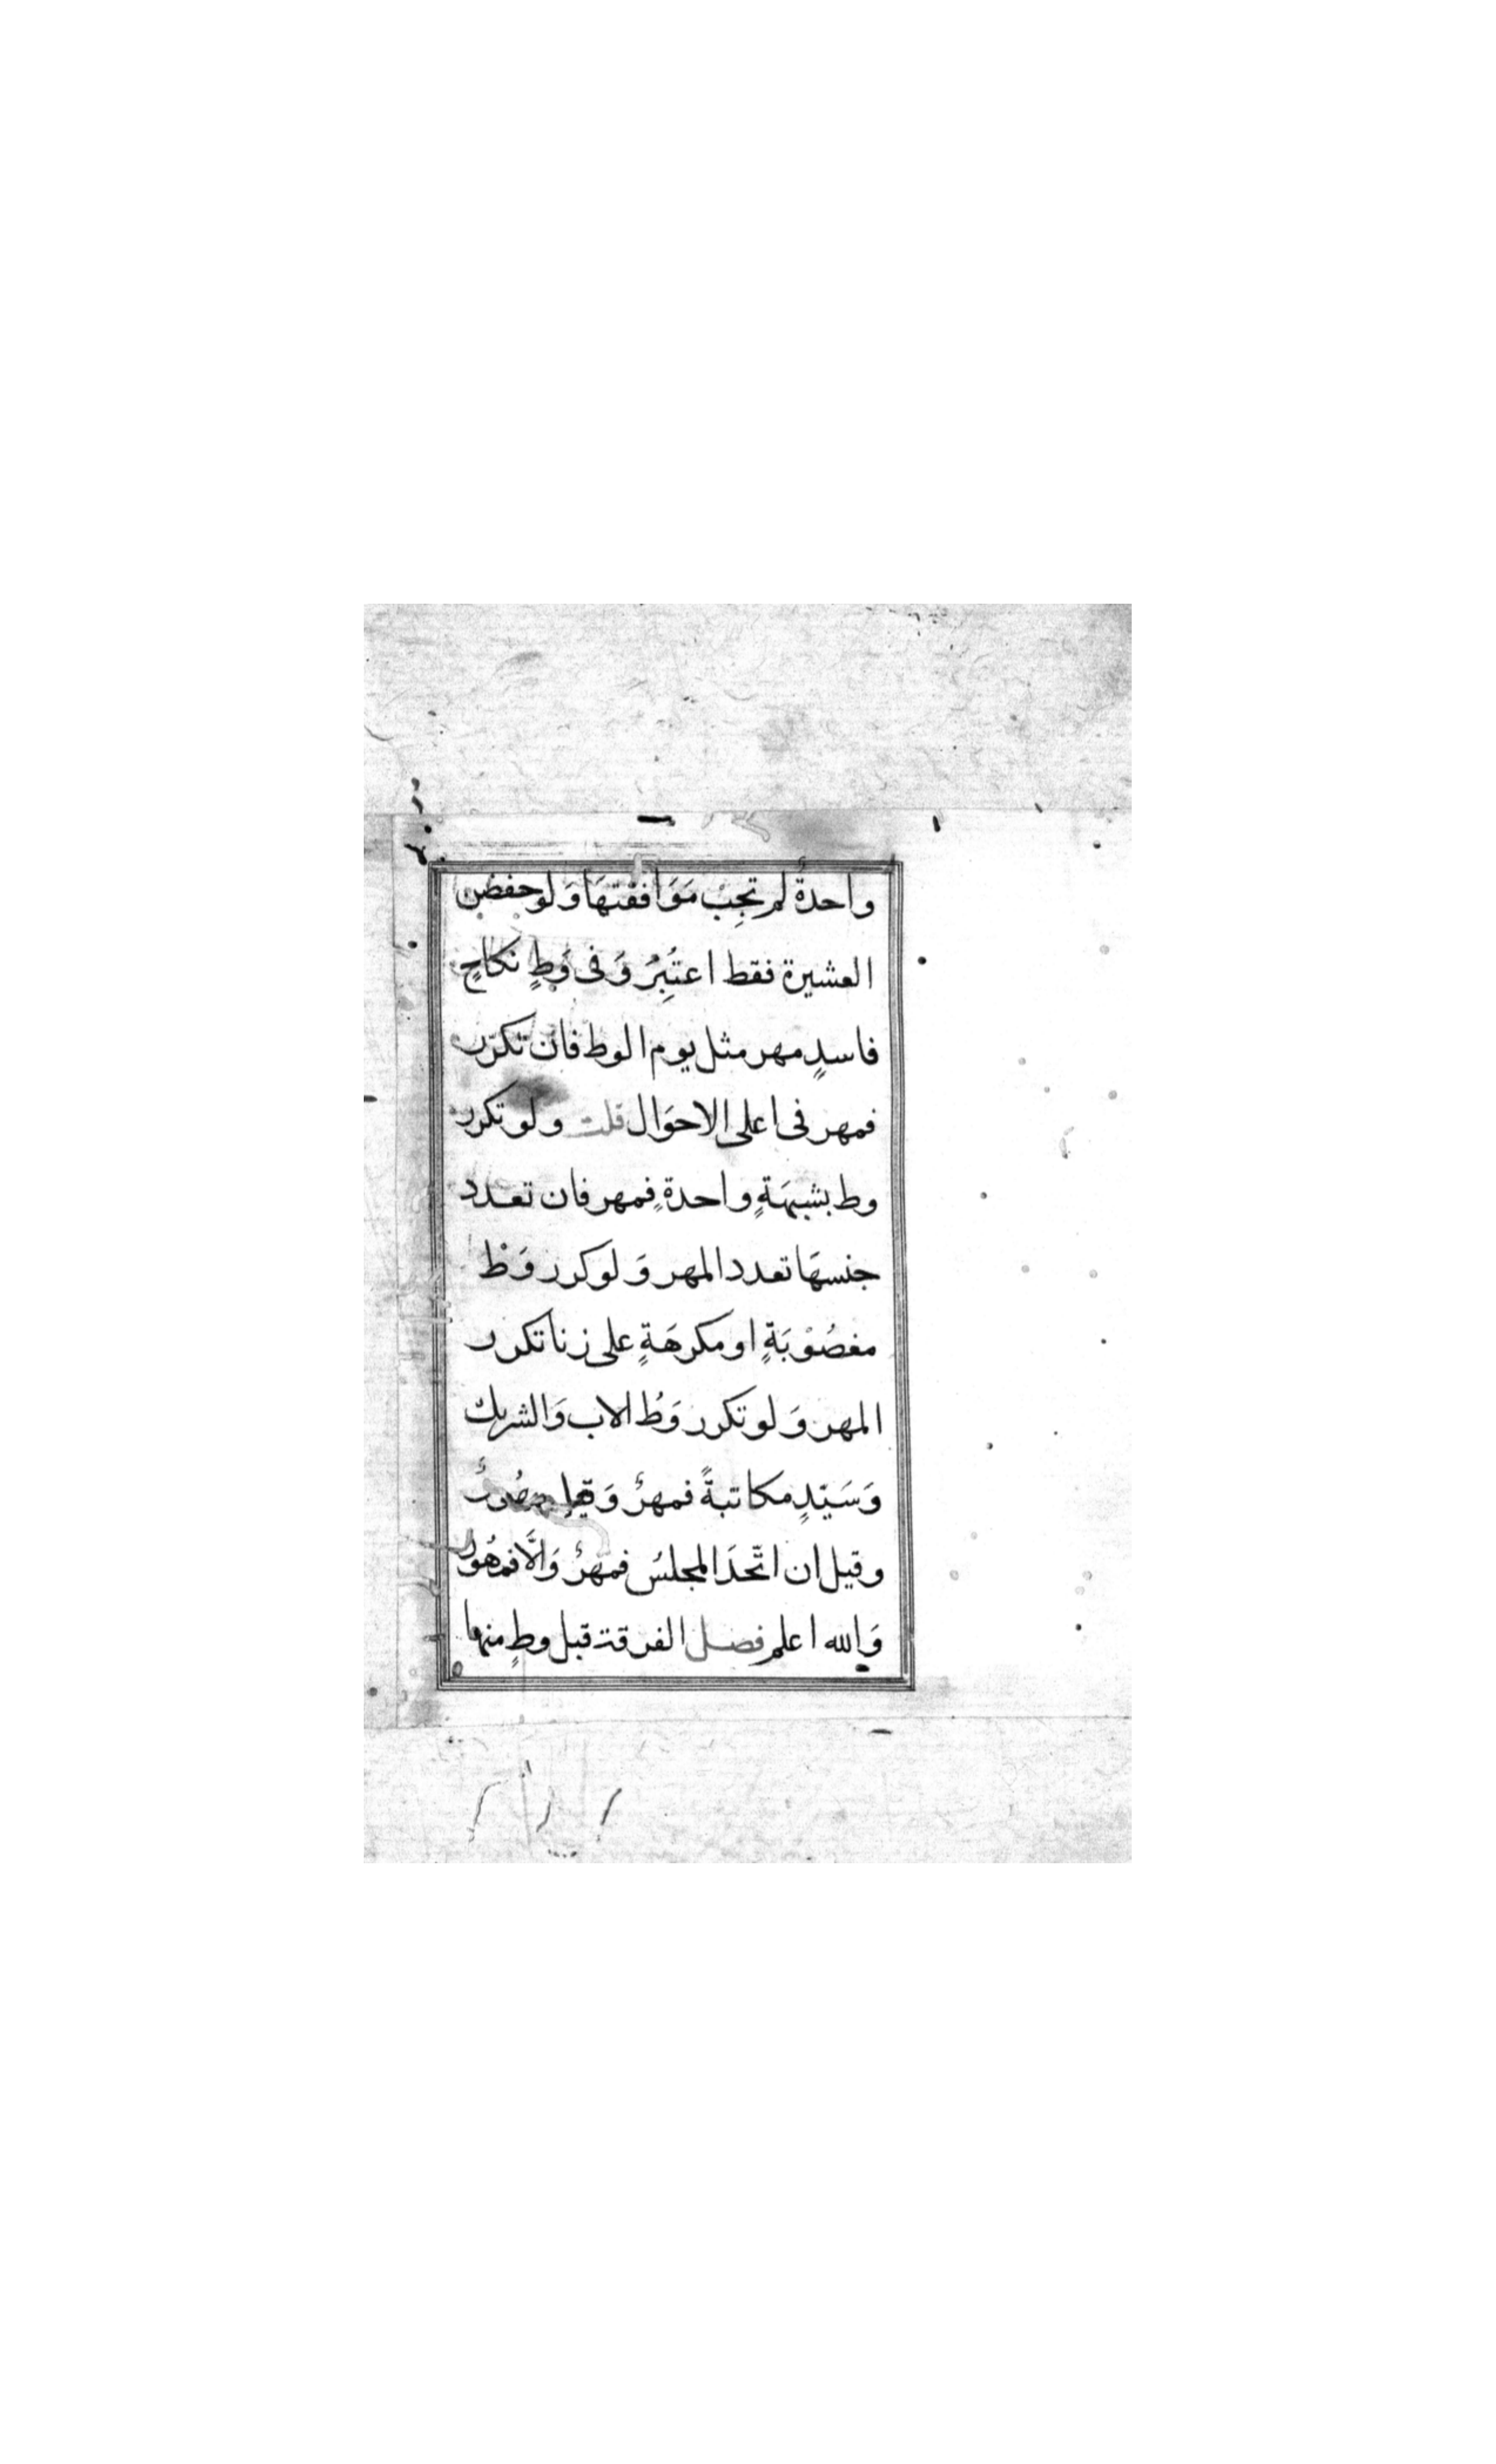 واحدةٌ لم تجب مَوَافقتهَا وَلو حفض
العشيرة فقط اعتُبِرُ وَفى وَطٍ نكاحٍ
فاسدٍ مهر مثل يوم الوط فان تكرّر
فمهر فى اعلى الاحوَال قلت ولو تكرر
وط بشبهَةٍ واحدةٍ فمهر فان تعدد
جنسهَا تعدد المهر وَلو كرر وَطْ
مغصُوْبَةٍ او مكرهَةٍ على زنا تكرر
المهر وَلو تكرر وَطُ الاب وَالشريك
وَسَيّدٍ مكاتبةً فمهرٌ وَقيل مهُورٌ
وقيل ان اتّحدَ المجلسُ فمهرٌ وَالَّا فمهُورٌ
وَالله اعلم فصل الفرقة قبل وطٍ منها